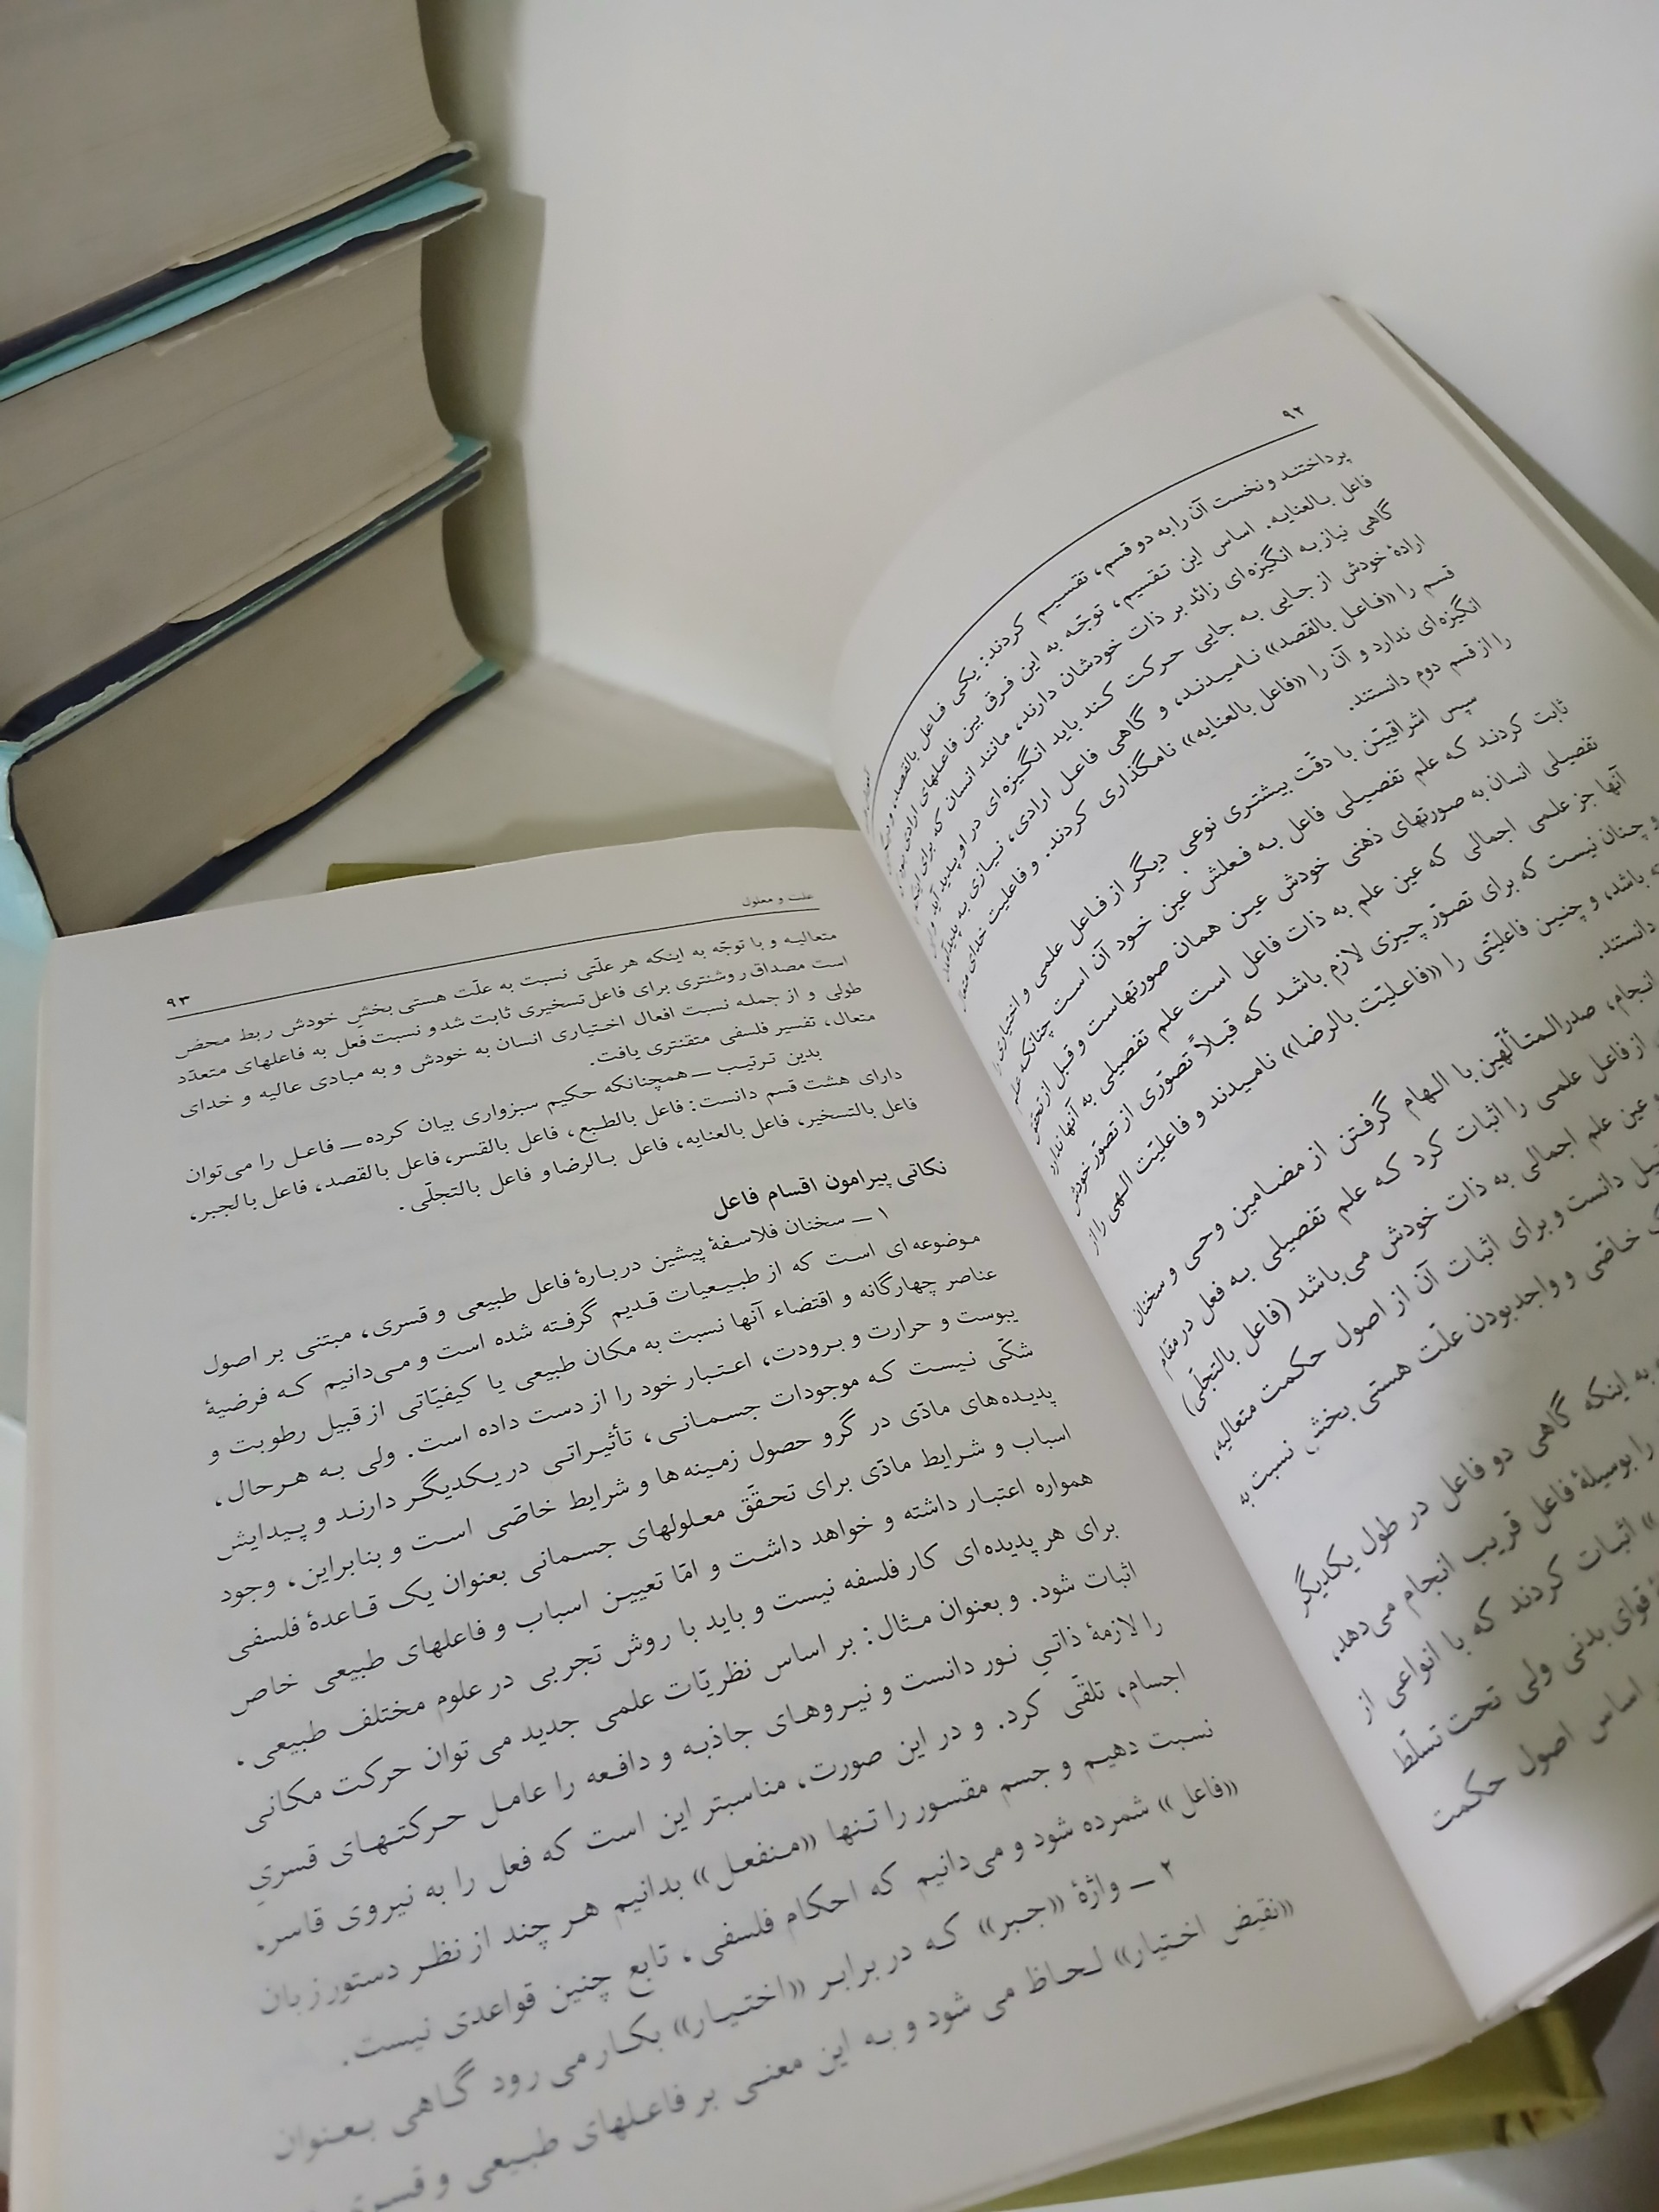 ۹۲
پرداختند و نخست آن را به دو قسم، تقسیم کردند: یکی فاعل بالقصد، و
فاعل بالعنایه. اساس این تقسیم، توجّه به این فرق بین فاعلهای ارادی بود که
گاهی نیاز به انگیزه‌ای زائد بر ذات خودشان دارند، مانند انسان که برای اینکه
ارادهٔ خودش از جایی به جایی حرکت کند باید انگیزه‌ای در او پدید آید، و این
قسم را «فاعل بالقصد» نامیدند، و گاهی فاعل ارادی، نیازی به پدیدآمدن
انگیزه‌ای ندارد و آن را «فاعل بالعنایه» نامگذاری کردند. و فاعلیت خدای متعال
را از قسم دوم دانستند.
سپس اشراقیین با دقّت بیشتری نوعی دیگر از فاعل علمی و اختیاری را
ثابت کردند که علم تفصیلی فاعل به فعلش عین خود آن است چنانکه علم
تفصیلی انسان به صورتهای ذهنی خودش عین همان صورتهاست و قبل از تحقّق
آنها جز علمی اجمالی که عین علم به ذات فاعل است علم تفصیلی به آنها ندارد
و چنان نیست که برای تصوّر چیزی لازم باشد که قبلاً تصوّری از تصوّر خودش
باشد، و چنین فاعلیّتی را «فاعلیّت بالرضا» نامیدند و فاعلیّت الهی را از
دانستند.
انجام، صدرالمتألّهین با الهام گرفتن از مضامین وحی و سخنان
از فاعل علمی را اثبات کرد که علم تفصیلی به فعل در مقام
عین علم اجمالی به ذات خودش می‌باشد (فاعل بالتجلّی)
دانست و برای اثبات آن از اصول حکمت متعالیه،
خاصّی و واجد بودن علّت هستی بخش نسبت به
به اینکه گاهی دو فاعل در طول یکدیگر
را بوسیلهٔ فاعل قریب انجام می‌دهد،
اثبات کردند که با انواعی از
قوای بدنی ولی تحت تسلّط
اساس اصول حکمت
علت و معلول
۹۳
متعالیه و با توجّه به اینکه هر علّتی نسبت به علّت هستی بخشِ خودش ربط محض
است مصداق روشنتری برای فاعل تسخیری ثابت شد و نسبت فعل به فاعلهای متعدّد
طولی و از جمله نسبت افعال اختیاری انسان به خودش و به مبادی عالیه و خدای
متعال، تفسیر فلسفی متقنتری یافت.
بدین ترتیب ــ همچنانکه حکیم سبزواری بیان کرده ــ فاعل را می‌توان
دارای هشت قسم دانست: فاعل بالطبع، فاعل بالقسر، فاعل بالقصد، فاعل بالجبر،
فاعل بالتسخیر، فاعل بالعنایه، فاعل بالرضا و فاعل بالتجلّی.
نکاتی پیرامون اقسام فاعل
۱ ــ سخنان فلاسفهٔ پیشین دربارهٔ فاعل طبیعی و قسری، مبتنی بر اصول
موضوعه‌ای است که از طبیعیات قدیم گرفته شده است و می‌دانیم که فرضیهٔ
عناصر چهارگانه و اقتضاء آنها نسبت به مکان طبیعی یا کیفیّاتی از قبیل رطوبت و
یبوست و حرارت و برودت، اعتبار خود را از دست داده است. ولی به هرحال،
شکّی نیست که موجودات جسمانی، تأثیراتی در یکدیگر دارند و پیدایش
پدیده‌های مادّی در گرو حصول زمینه‌ها و شرایط خاصّی است و بنابراین، وجود
اسباب و شرایط مادّی برای تحقّق معلولهای جسمانی بعنوان یک قاعدهٔ فلسفی
همواره اعتبار داشته و خواهد داشت و امّا تعیین اسباب و فاعلهای طبیعی خاص
برای هر پدیده‌ای کار فلسفه نیست و باید با روش تجربی در علوم مختلف طبیعی،
اثبات شود. و بعنوان مثال: بر اساس نظریّات علمی جدید می توان حرکت مکانی
را لازمهٔ ذاتیِ نور دانست و نیروهای جاذبه و دافعه را عامل حرکتهای قسریِ
اجسام، تلقّی کرد. و در این صورت، مناسبتر این است که فعل را به نیروی قاسر،
نسبت دهیم و جسم مقسور را تنها «منفعل» بدانیم هر چند از نظر دستور زبان
«فاعل» شمرده شود و می‌دانیم که احکام فلسفی، تابع چنین قواعدی نیست.
۲ ــ واژهٔ «جبر» که در برابر «اختیار» بکار می رود گاهی بعنوان
«نقیض اختیار» لحاظ می شود و به این معنی بر فاعلهای طبیعی و قسری